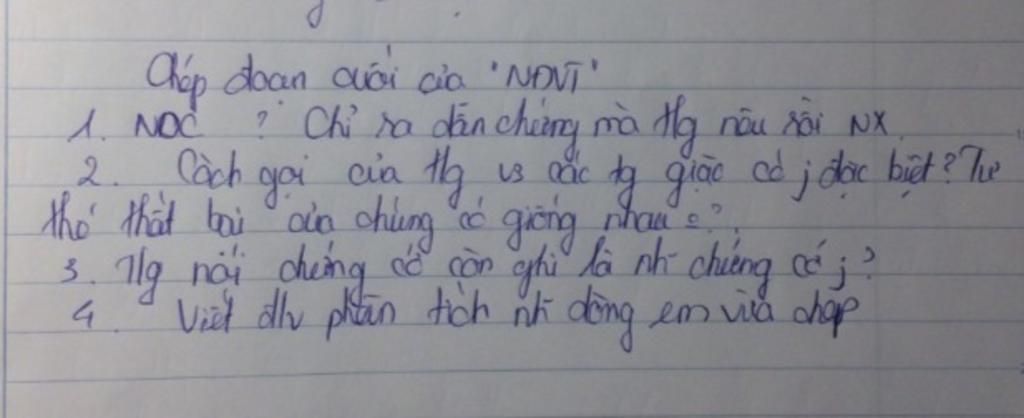 Chép đoạn cuối của "NĐVT"
1. NDC ? Chỉ ra dẫn chứng mà tg nêu rồi NX
2. Cách gọi của tg vs các tg giặc có j đặc biệt? Tư
thế thất bại của chúng có giống nhau ?
3. Tg nói chứng cớ còn ghi là nh~ chứng cớ j?
4 Viết đtv phân tích nh~ dòng em vừa chép